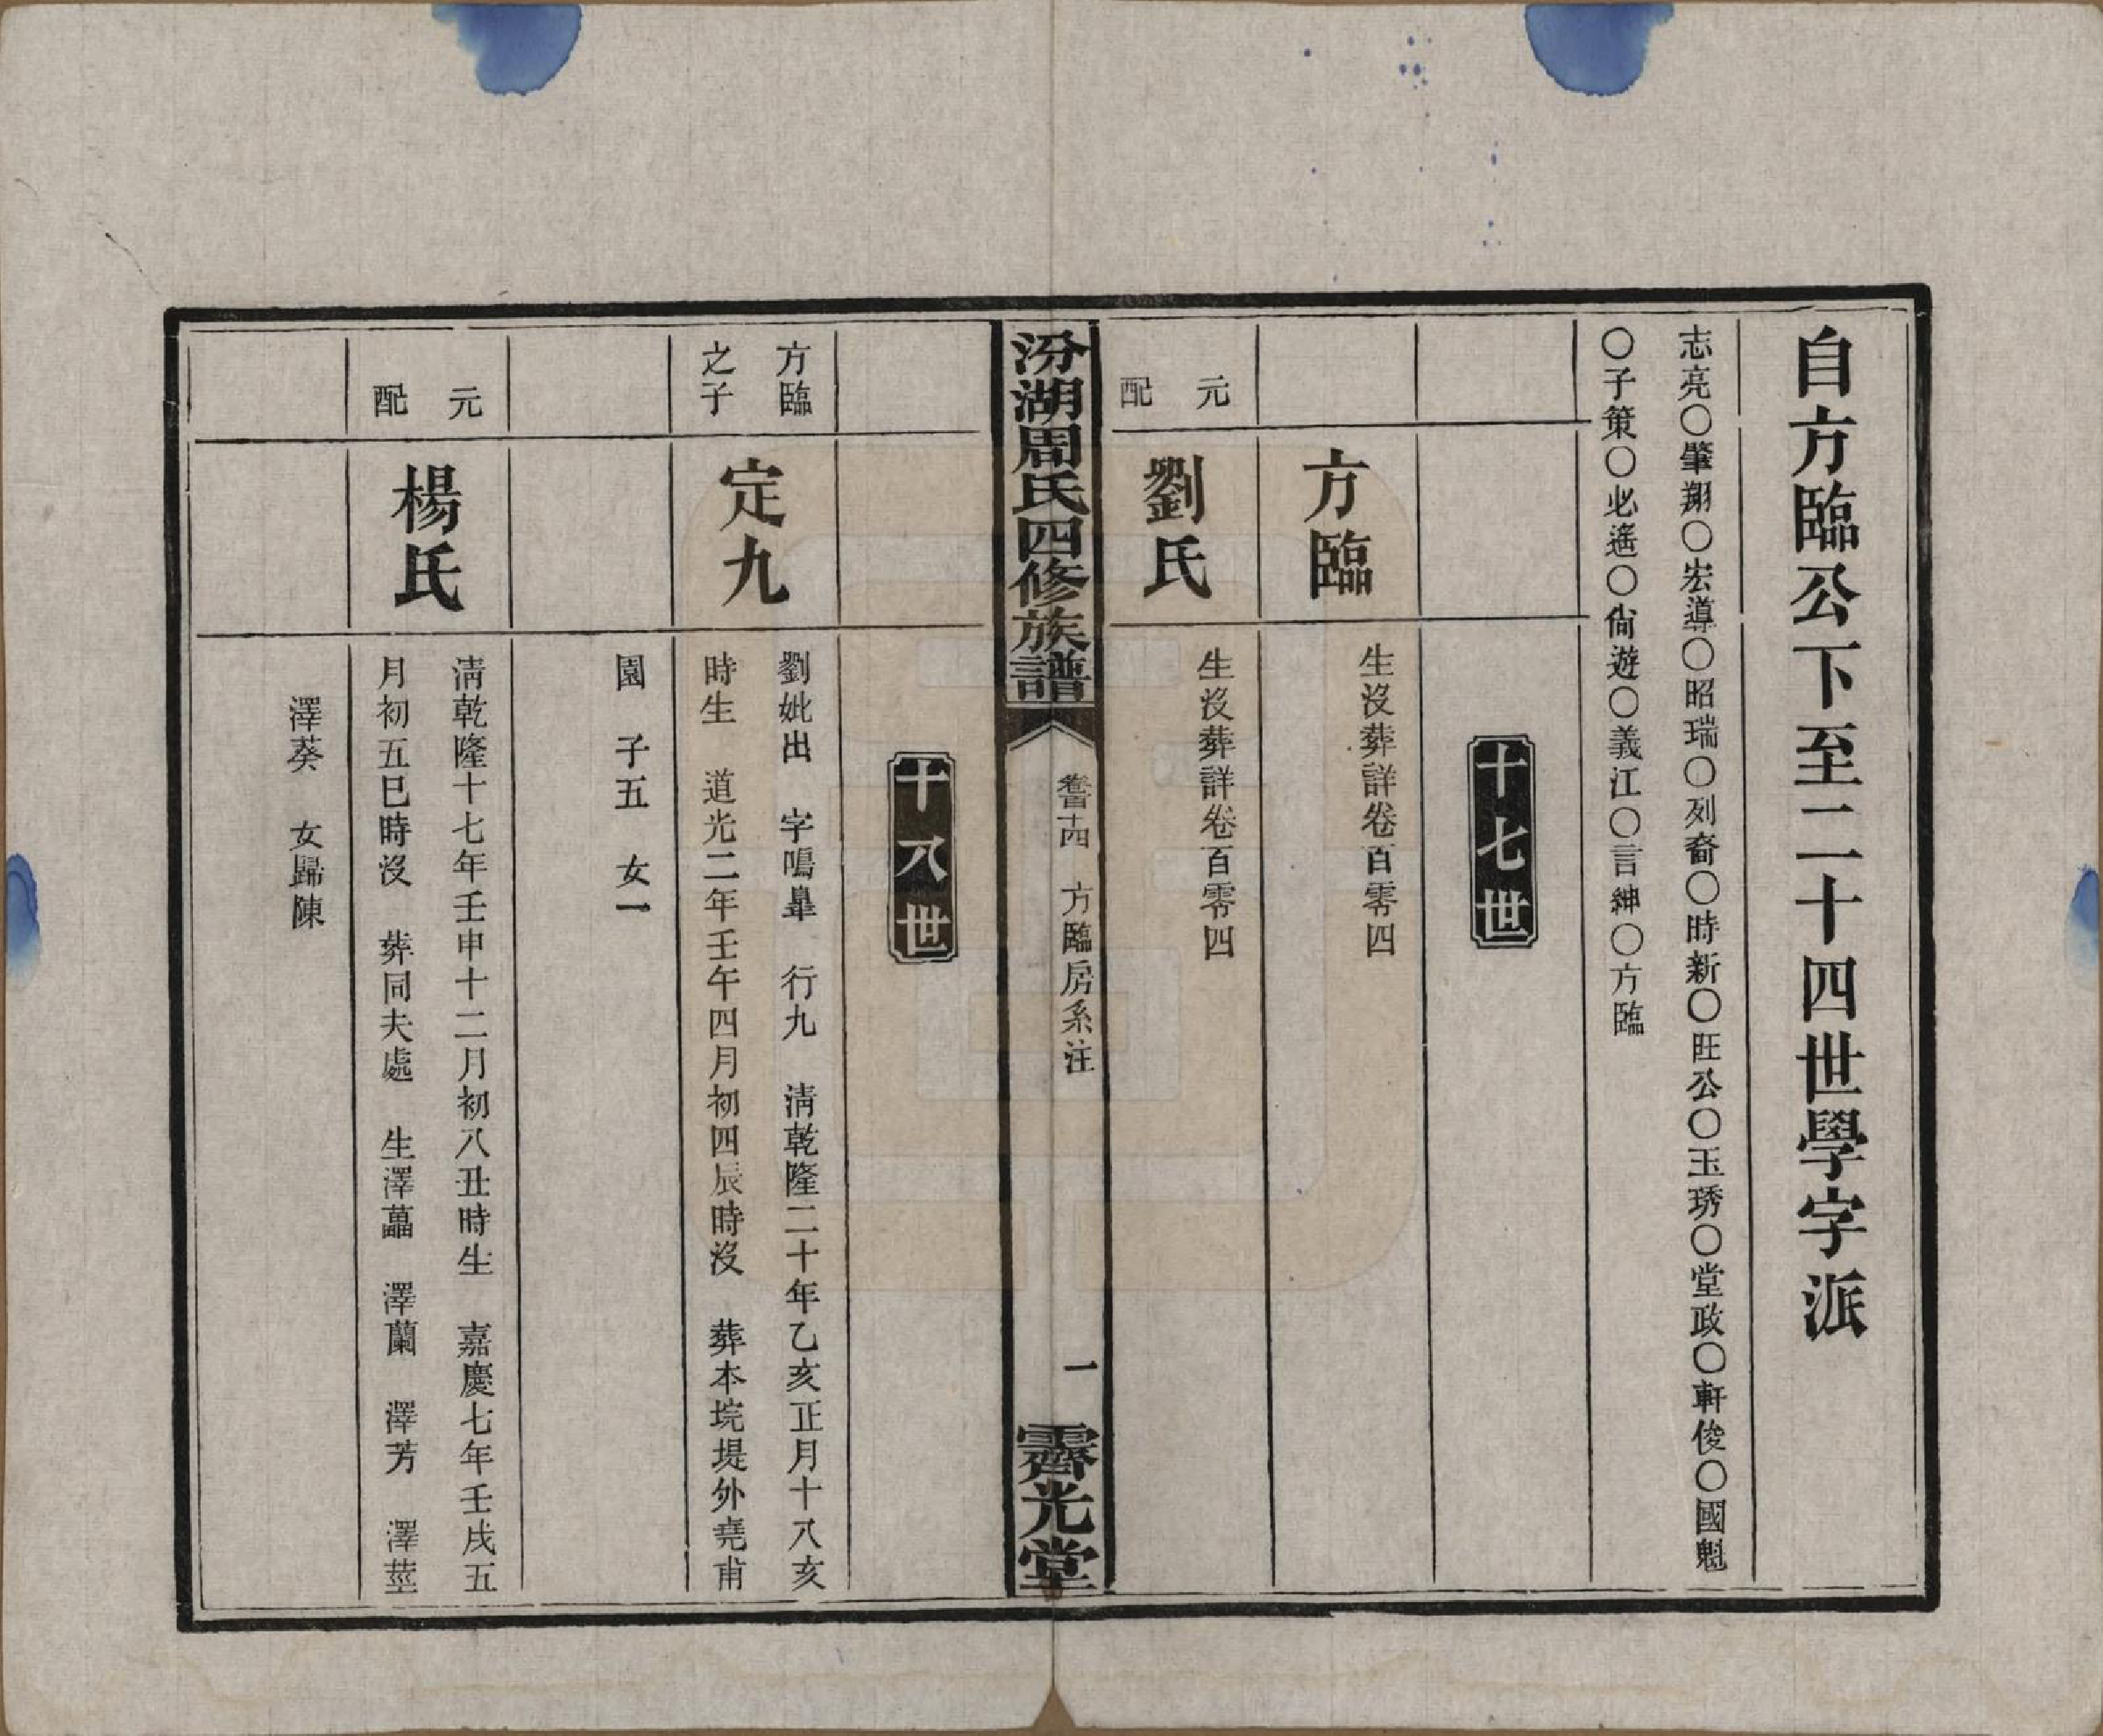 自方臨公下至二十四世學字派
志亮〇肇翔〇宏導〇昭瑞〇列裔〇時新〇旺公〇玉琇〇堂政〇軒俊〇國魁
〇子策〇必遙〇尙遊〇義江〇言紳〇方臨
十七世
方臨
生沒葬詳卷百零四
元配
劉氏
生沒葬詳卷百零四
汾湖周氏四修族譜
卷百十四 方臨房系注
一
霽光堂
十八世
方臨
之子
定九
劉妣出 字鳴臯 行九 淸乾隆二十年乙亥正月十八亥
時生 道光二年壬午四月初四辰時沒 葬本垸堤外堯甫
園 子五 女一
元配
楊氏
淸乾隆十七年壬申十二月初八丑時生 嘉慶七年壬戌五
月初五巳時沒 葬同夫處 生澤藟 澤蘭 澤芳 澤莖
澤葵 女歸陳